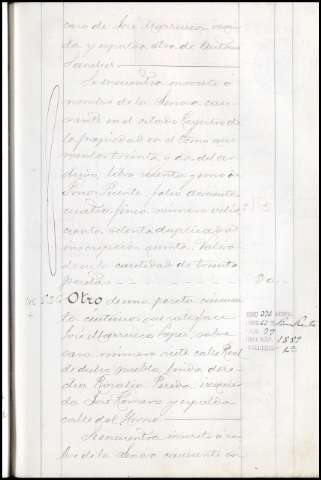 casa de José Mauricio, izquier
da y espalda otra de Antonio
Sanchez
Se encuentra inscrito á
nombre de la Señora cau
sante en el citado Registro de
la propiedad en el tomo
dos del ar
chivo, libro setenta y uno de
folio doscientos
cuatro, finca número
ciento setenta duplicado
inscripcion quinta. Valora
do en la cantidad de treinta
pesetas
Otro de una peseta cincuen
ta centimos que satisface
José Mauricio Lopez, sobre
casa número siete calle Real
de dicho pueblo, linda dere
cha Rosalia Pereda, izquier
da José Romero y espalda
calle del Horno
Se encuentra inscrito á nom
bre de la Señora causante en